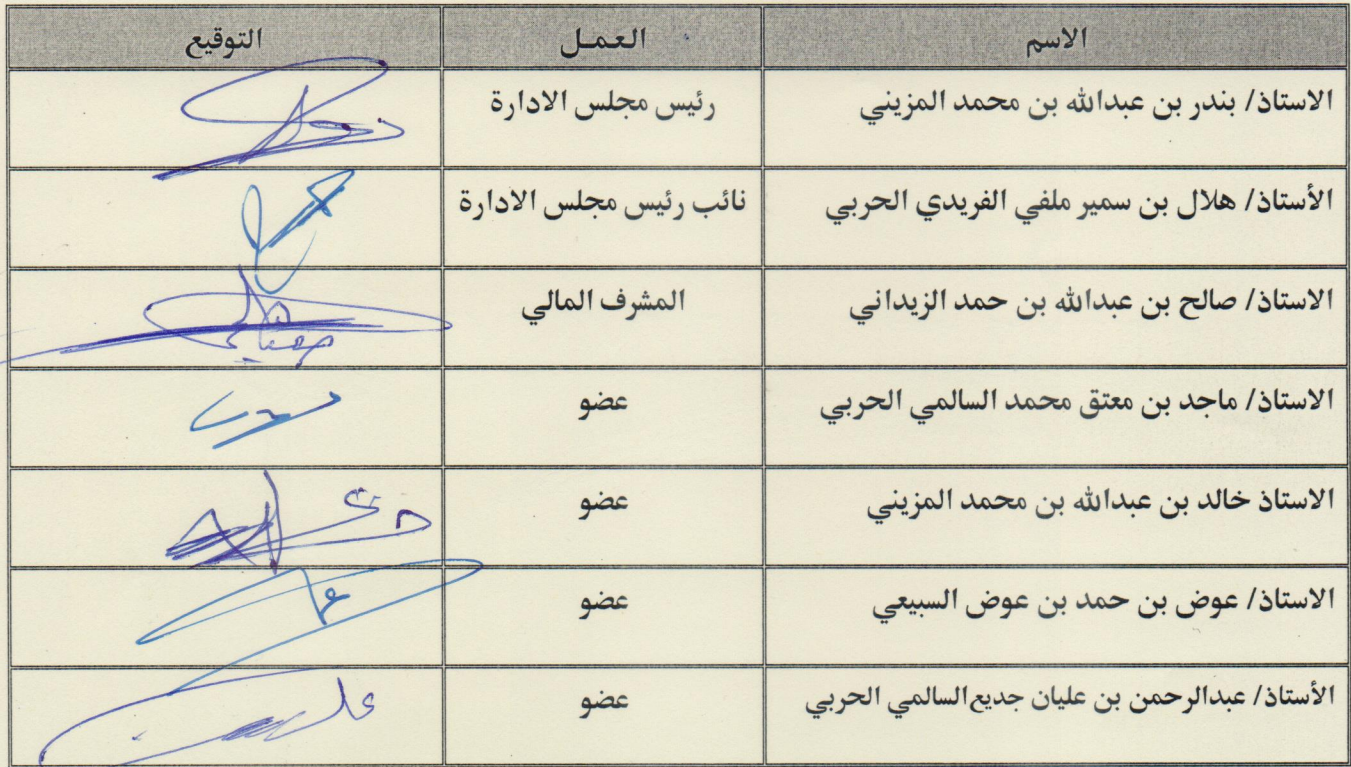 الاسم العمـل التوقيع
الاستاذ/ بندر بن عبدالله بن محمد المزيني رئيس مجلس الادارة
الأستاذ/ هلال بن سمير ملفي الفريدي الحربي نائب رئيس مجلس الادارة
الاستاذ/ صالح بن عبدالله بن حمد الزيداني المشرف المالي
الاستاذ/ ماجد بن معتق محمد السالمي الحربي عضو
الاستاذ خالد بن عبدالله بن محمد المزيني عضو
الاستاذ/ عوض بن حمد بن عوض السبيعي عضو
الأستاذ/ عبدالرحمن بن عليان جديع السالمي الحربي عضو